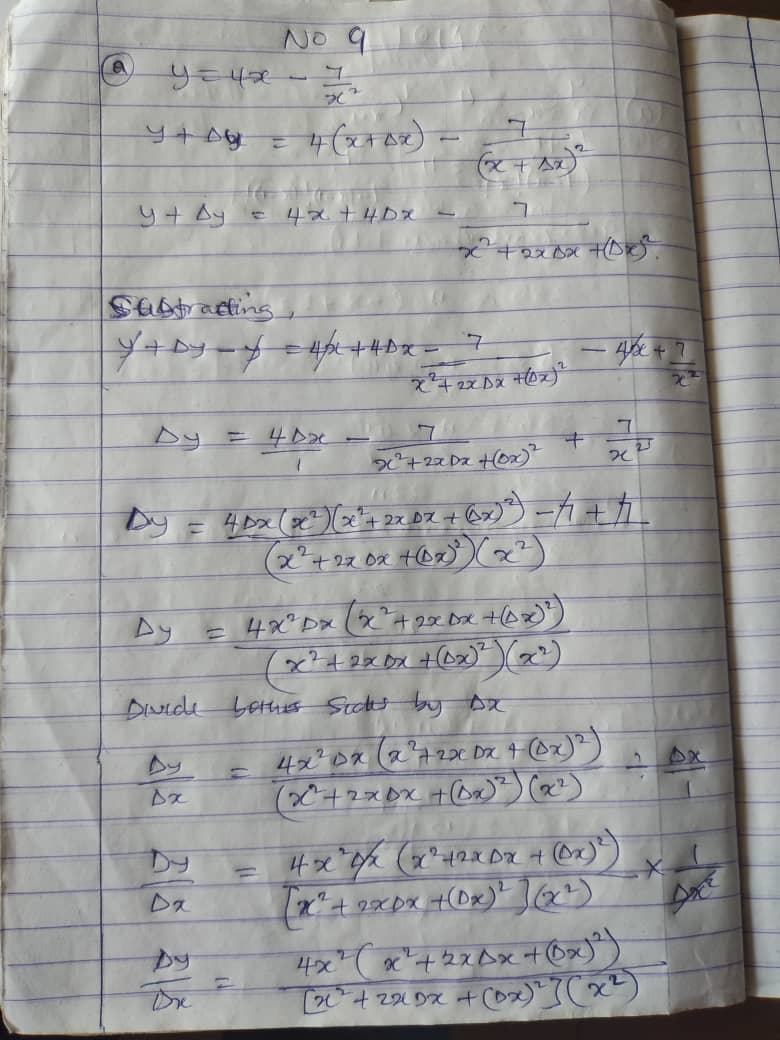 NO 9
(a) y = 4x - 7/x²
y + Δy = 4(x + Δx) - 7/(x + Δx)²
y + Δy = 4x + 4Δx - 7/x² + 2xΔx + (Δx)².
Subtracting,
y + Δy - y = 4x + 4Δx - 7/x² + 2xΔx + (Δx)² - 4x + 7/x²
Δy = 4Δx/1 - 7/x² + 2xΔx + (Δx)² + 7/x²
Δy = 4Δx(x²)(x² + 2xΔx + (Δx)²) - 7 + 7/(x² + 2xΔx + (Δx)²)(x²)
Δy = 4x²Δx(x² + 2xΔx + (Δx)²)/(x² + 2xΔx + (Δx)²)(x²)
Divide sides by Δx
Δy/Δx = 4x²Δx(x² + 2xΔx + (Δx)²)/(x² + 2xΔx + (Δx)²)(x²) ÷ Δx/1
Δy/Δx = 4x²Δx(x² + 2xΔx + (Δx)²)/[x² + 2xΔx + (Δx)²](x²) × 1/Δx
Δy/Δx = 4x²(x² + 2xΔx + (Δx)²)/[x² + 2xΔx + (Δx)²](x²)